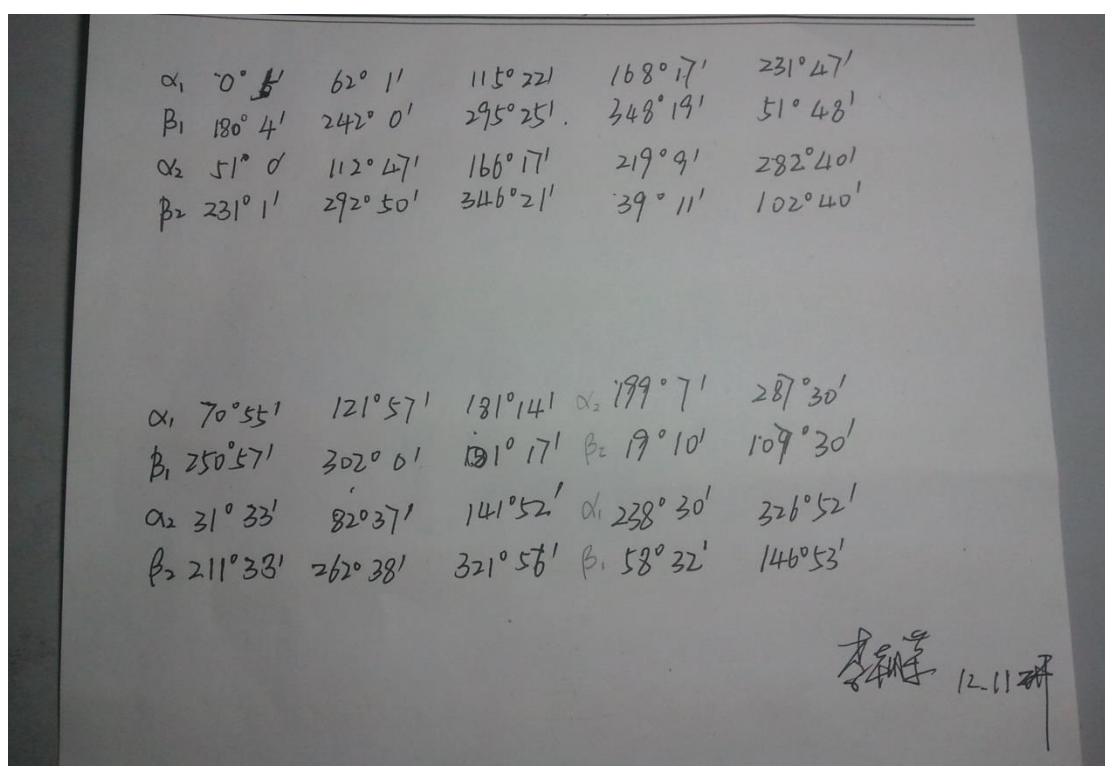 α₁ 0° 5′ 62° 1′ 115° 22′ 168° 17′ 231° 47′
β₁ 180° 4′ 242° 0′ 295° 25′. 348° 19′ 51° 48′
α₂ 51° 0′ 112° 47′ 166° 17′ 219° 9′ 282° 40′
β₂ 231° 1′ 292° 50′ 346° 21′ 39° 11′ 102° 40′
α₁ 70° 55′ 121° 57′ 181° 14′ α₂ 199° 7′ 287° 30′
β₁ 250° 57′ 302° 0′ 1° 17′ β₂ 19° 10′ 109° 30′
α₂ 31° 33′ 82° 37′ 141° 52′ α₁ 238° 30′ 326° 52′
β₂ 211° 33′ 262° 38′ 321° 56′ β₁ 58° 32′ 146° 53′
12.11